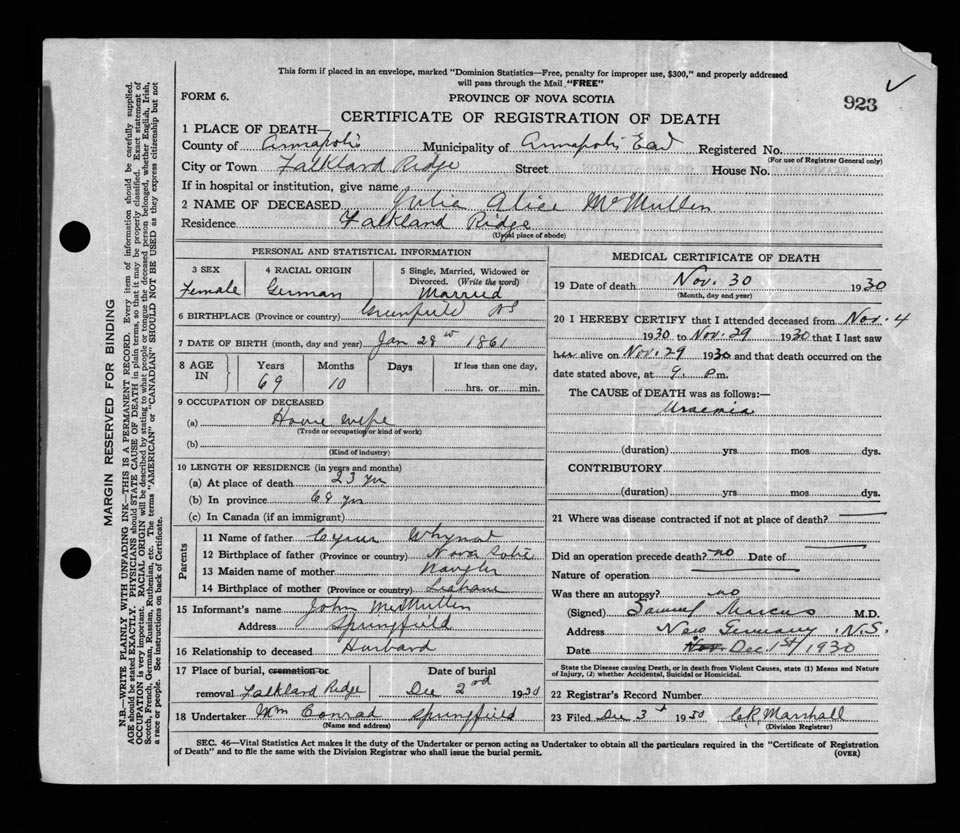 This form if placed in an envelope, marked "Dominion Statistics—Free, penalty for improper use, $300," and properly addressed
will pass through the Mail "FREE"
FORM 6.
PROVINCE OF NOVA SCOTIA
923
CERTIFICATE OF REGISTRATION OF DEATH
1 PLACE OF DEATH—
County of Annapolis Municipality of Annapolis East Registered No.
(For use of Registrar General only)
City or Town Falkland Ridge Street House No.
If in hospital or institution, give name
2 NAME OF DECEASED Julie Alice McMullen
Residence Falkland Ridge
(Usual place of abode)
PERSONAL AND STATISTICAL INFORMATION
3 SEX 4 RACIAL ORIGIN 5 Single, Married, Widowed or
Divorced. (Write the word)
Female German Married
6 BIRTHPLACE (Province or country) Greenfield NS
7 DATE OF BIRTH (month, day and year) Jan 28 1861
8 AGE IN Years Months Days If less than one day,
69 10 hrs. or min.
9 OCCUPATION OF DECEASED
(a) House wife
(Trade or occupation or kind of work)
(b)
(Kind of industry)
10 LENGTH OF RESIDENCE (in years and months)
(a) At place of death 23 yrs
(b) In province 69 yrs
(c) In Canada (if an immigrant)
Parents
11 Name of father Whynot
12 Birthplace of father (Province or country) Nova Scotia
13 Maiden name of mother Naugler
14 Birthplace of mother (Province or country)
15 Informant's name John McMullen
Address Springfield
16 Relationship to deceased Husband
17 Place of burial, cremation or Date of burial
removal Falkland Ridge Dec 2nd 1930
18 Undertaker Wm Conrad Springfield
(Name and address)
MEDICAL CERTIFICATE OF DEATH
19 Date of death Nov. 30 1930
(Month, day and year)
20 I HEREBY CERTIFY that I attended deceased from Nov. 4
1930 to Nov. 29 1930 that I last saw
her alive on Nov. 29 1930 and that death occurred on the
date stated above, at 9 P.m.
The CAUSE of DEATH was as follows:—
Uraemia
(duration) yrs mos dys.
CONTRIBUTORY
(duration) yrs mos dys.
21 Where was disease contracted if not at place of death?
Did an operation precede death? no Date of
Nature of operation
Was there an autopsy? no
(Signed) Samuel Marcus M.D.
Address New Germany N.S.
Date Nov. Dec. 1st/1930
State the Disease causing Death, or in death from Violent Causes, state (1) Means and Nature
of Injury, (2) whether Accidental, Suicidal or Homicidal.
22 Registrar's Record Number
23 Filed Dec 3d 1930 C.R. Marshall
(Division Registrar)
SEC. 46—Vital Statistics Act makes it the duty of the Undertaker or person acting as Undertaker to obtain all the particulars required in the "Certificate of Registration
of Death" and to file the same with the Division Registrar who shall issue the burial permit.
(OVER)
MARGIN RESERVED FOR BINDING
N.B.—WRITE PLAINLY WITH UNFADING INK—THIS IS A PERMANENT RECORD. Every item of information should be carefully supplied.
AGE should be stated EXACTLY. PHYSICIANS should STATE CAUSE OF DEATH in plain terms, so that it may be properly classified. Exact statement of
OCCUPATION is very important. RACIAL ORIGIN will be described by stating to what people or tongue the deceased person belonged, whether English, Irish,
Scotch, French, German, Russian, Ruthenian, etc. The terms "AMERICAN" or "CANADIAN" SHOULD NOT BE USED as they express citizenship but not
a race or people. See instructions on back of Certificate.